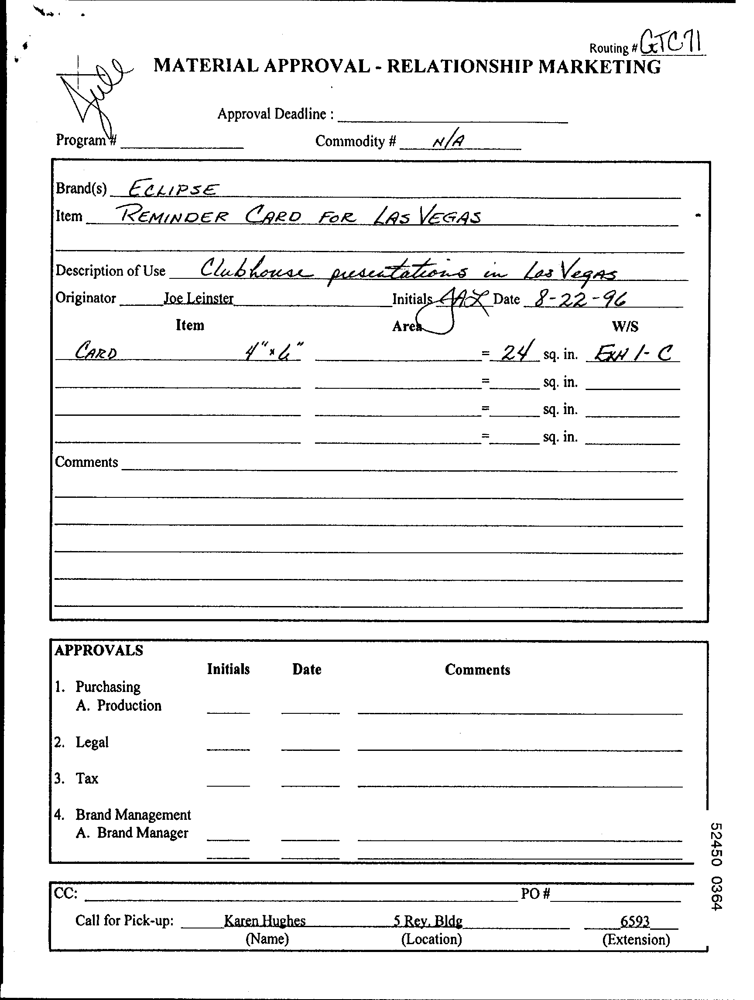 Routing # GTC71
MATERIAL APPROVAL - RELATIONSHIP MARKETING
Approval Deadline :
Program # Commodity # N/A
Brand(s) ECLIPSE
Item REMINDER CARD FOR LAS VEGAS
Description of Use Clubhouse presentations in Las Vegas
Originator Joe Leinster Initials JAL Date 8-22-96
Item Area W/S
CARD 4" x 6" = 24 sq. in. EXH 1-C
= sq. in.
= sq. in.
= sq. in.
Comments
APPROVALS
Initials Date Comments
1. Purchasing
A. Production
2. Legal
3. Tax
4. Brand Management
A. Brand Manager
CC: PO #
Call for Pick-up: Karen Hughes 5 Rey. Bldg 6593
(Name) (Location) (Extension)
52450 0364